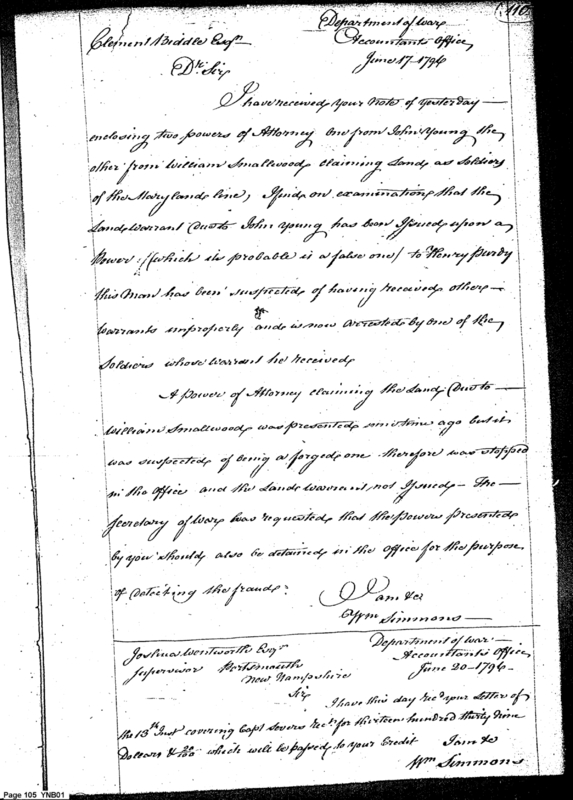 110
Department of War
Clement Biddle Esqr. Accountants Office
June 17 - 1796
Dr. Sir
I have received your note of yesterday
enclosing two powers of Attorney One from John Young the
other from William Smallwood claiming Land as Soldiers
of the Maryland line, I find on examination that the
Land Warrant Due to John Young has been Issued upon a
Power /(which its probable is a false one)/ to Henry Purdy
this Man has been suspected of having received other
Warrants improperly and is now arrested by one of the
Soldiers whose warrant he received
A Power of Attorney claiming the Land Due to
William Smallwood was presented some time ago but it
was suspected of being a forged one therefore was stopped
in the Office and the Land Warrant not Issued - The
Secretary of War has requested that the Powers presented
by you should also be detained in the Office for the purpose
of detecting the fraud.
I am &c
Wm Simmons
Joshua Wentworth Esqr. Department of War
Supervisor Portsmouth Accountants Office
New Hampshire June 20 - 1796
Sir
I have this day recd your Letter of
the 13th Inst covering Capt Severs rect. for thirteen hundred thirty nine
Dollars & /100 which will be passed to your Credit I am &c
Wm Simmons
Page 105 YNB01